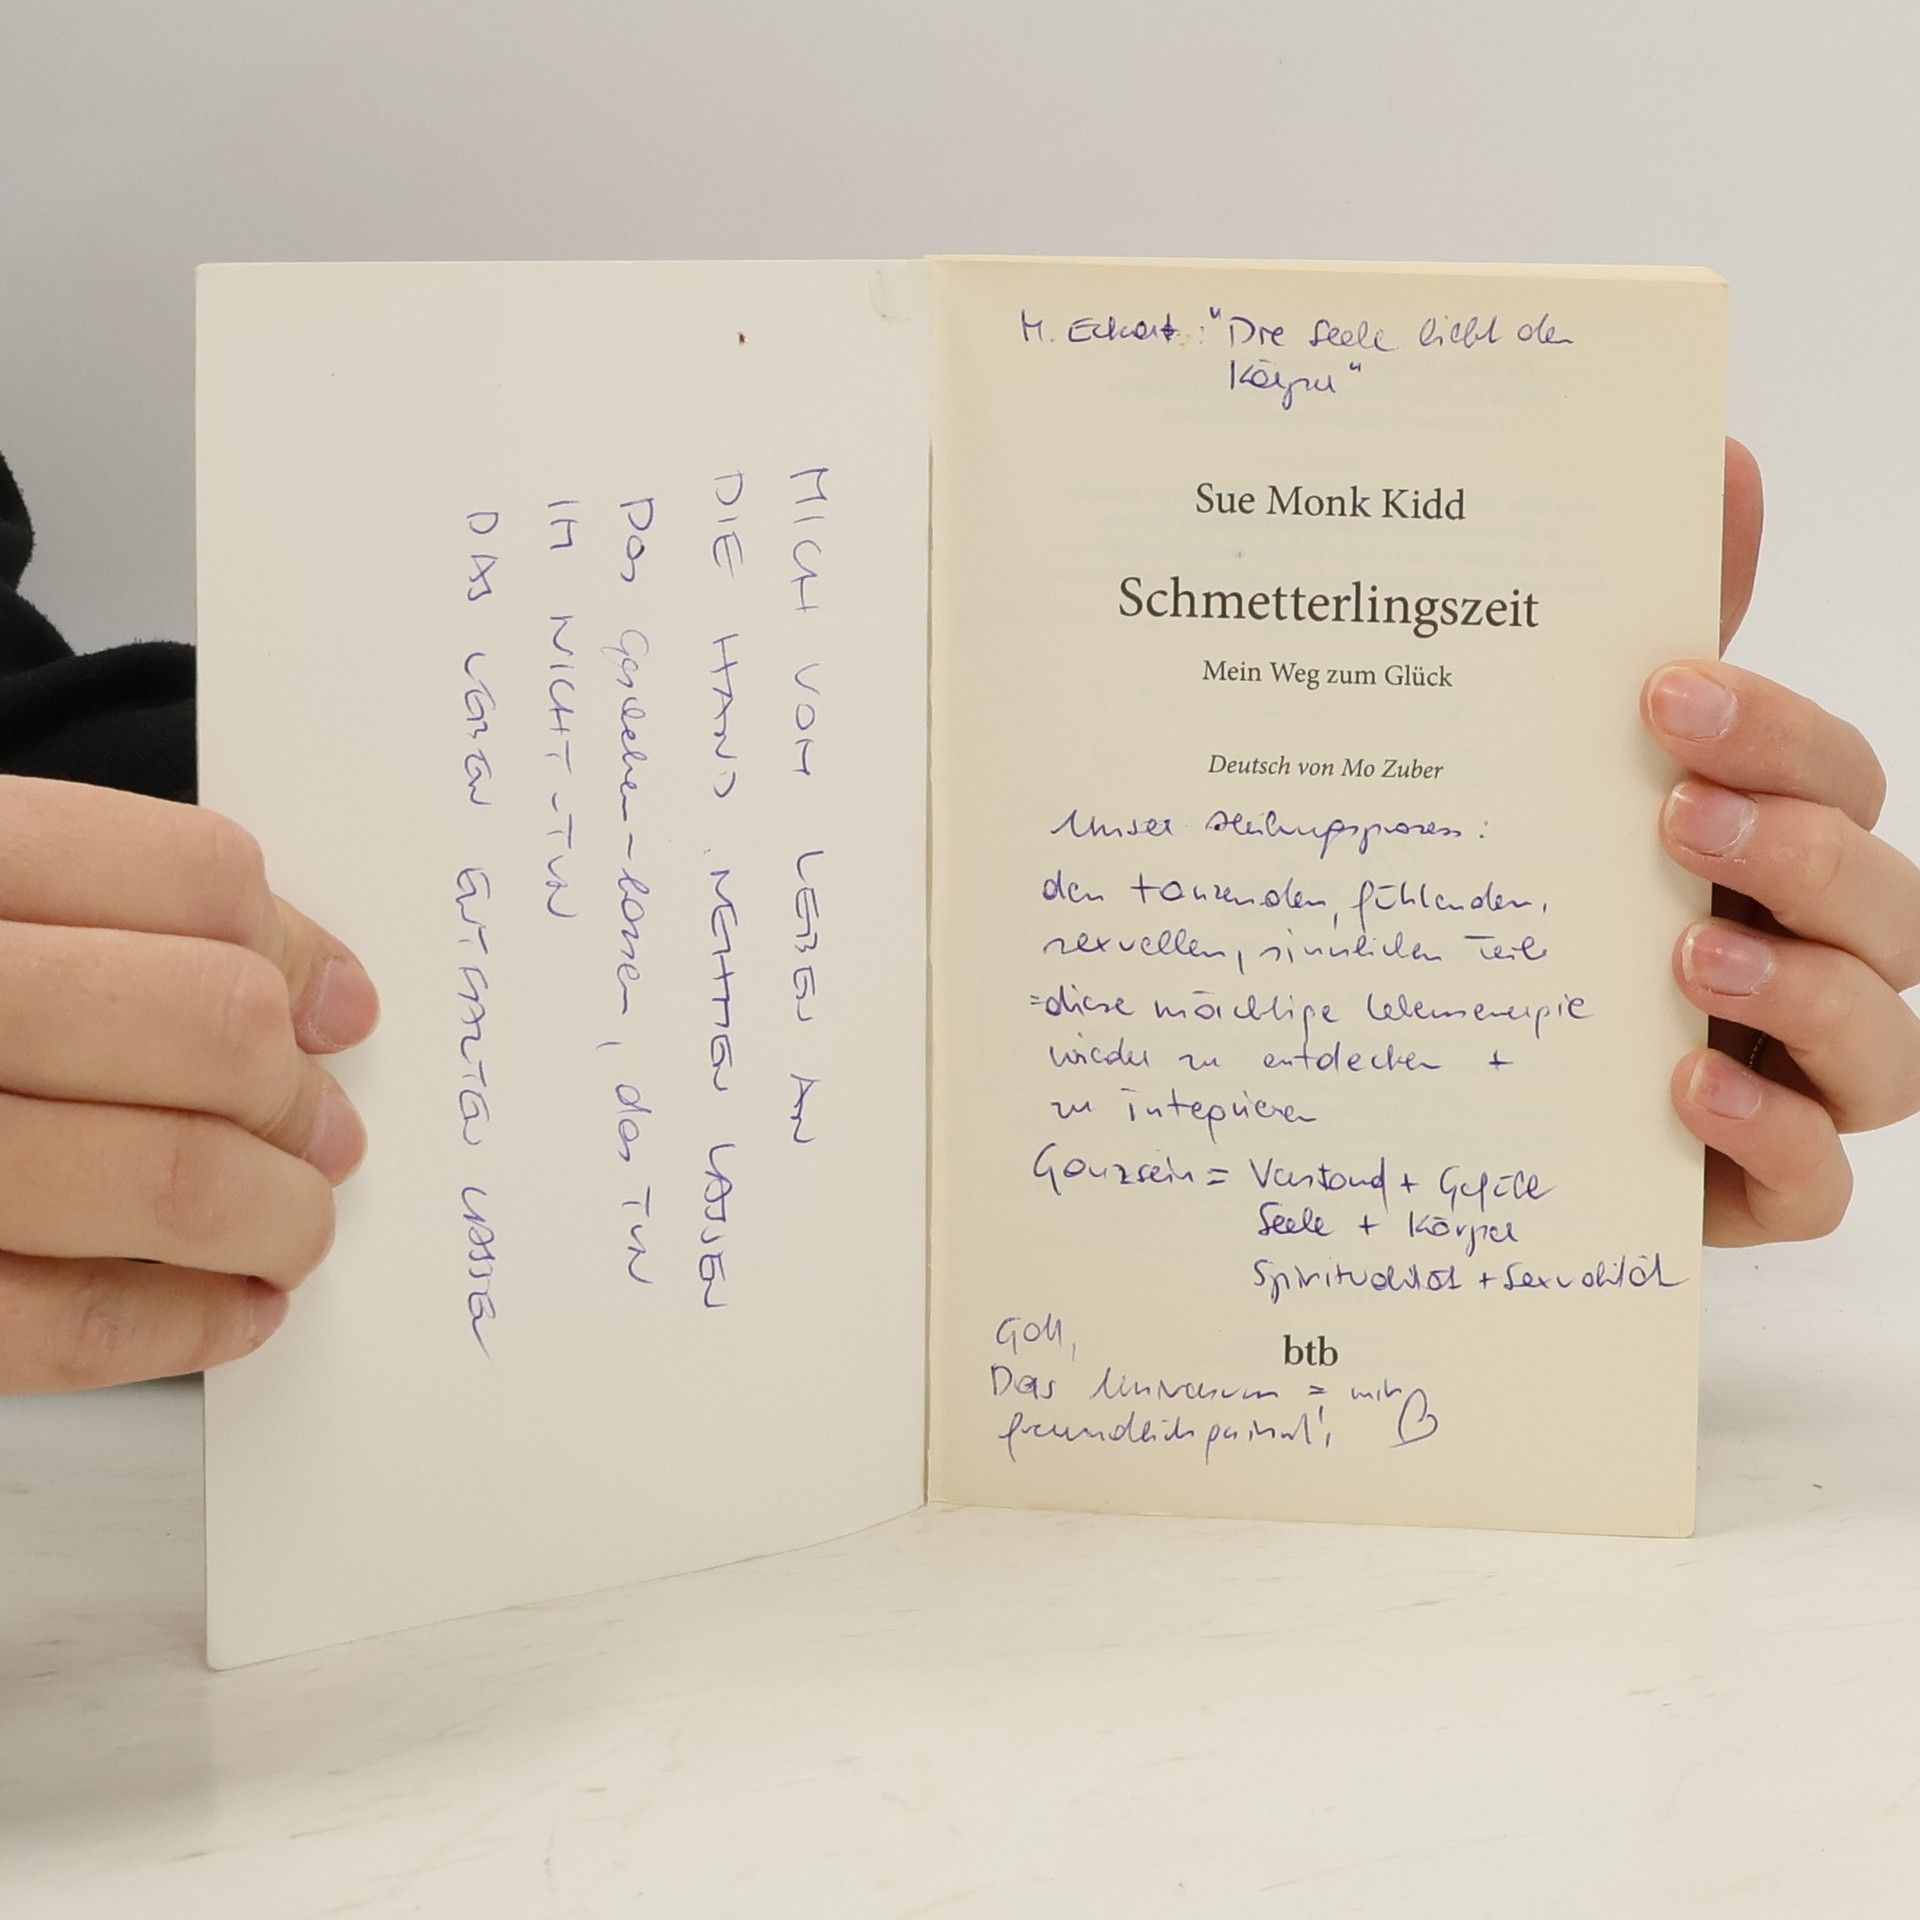 MICH VOM LEBEN AN
DIE HAND NEHMEN LASSEN
Das Geschehen-lassen, das TUN
IM NICHT-TUN
DAS LEBEN ENTFALTEN LASSEN
M. Eckart: "Die Seele liebt den
Körper"
Sue Monk Kidd
Schmetterlingszeit
Mein Weg zum Glück
Deutsch von Mo Zuber
Unser Heilungsprozess:
den tanzenden, fühlenden,
sexuellen, sinnlichen Teil
=diese mächtige Lebensenergie
wieder zu entdecken +
zu integrieren
Ganzsein = Verstand + Gefühl
Seele + Körper
Spiritualität + Sexualität
Gott,
btb
Das Universum = mir
freundlich gesinnt!